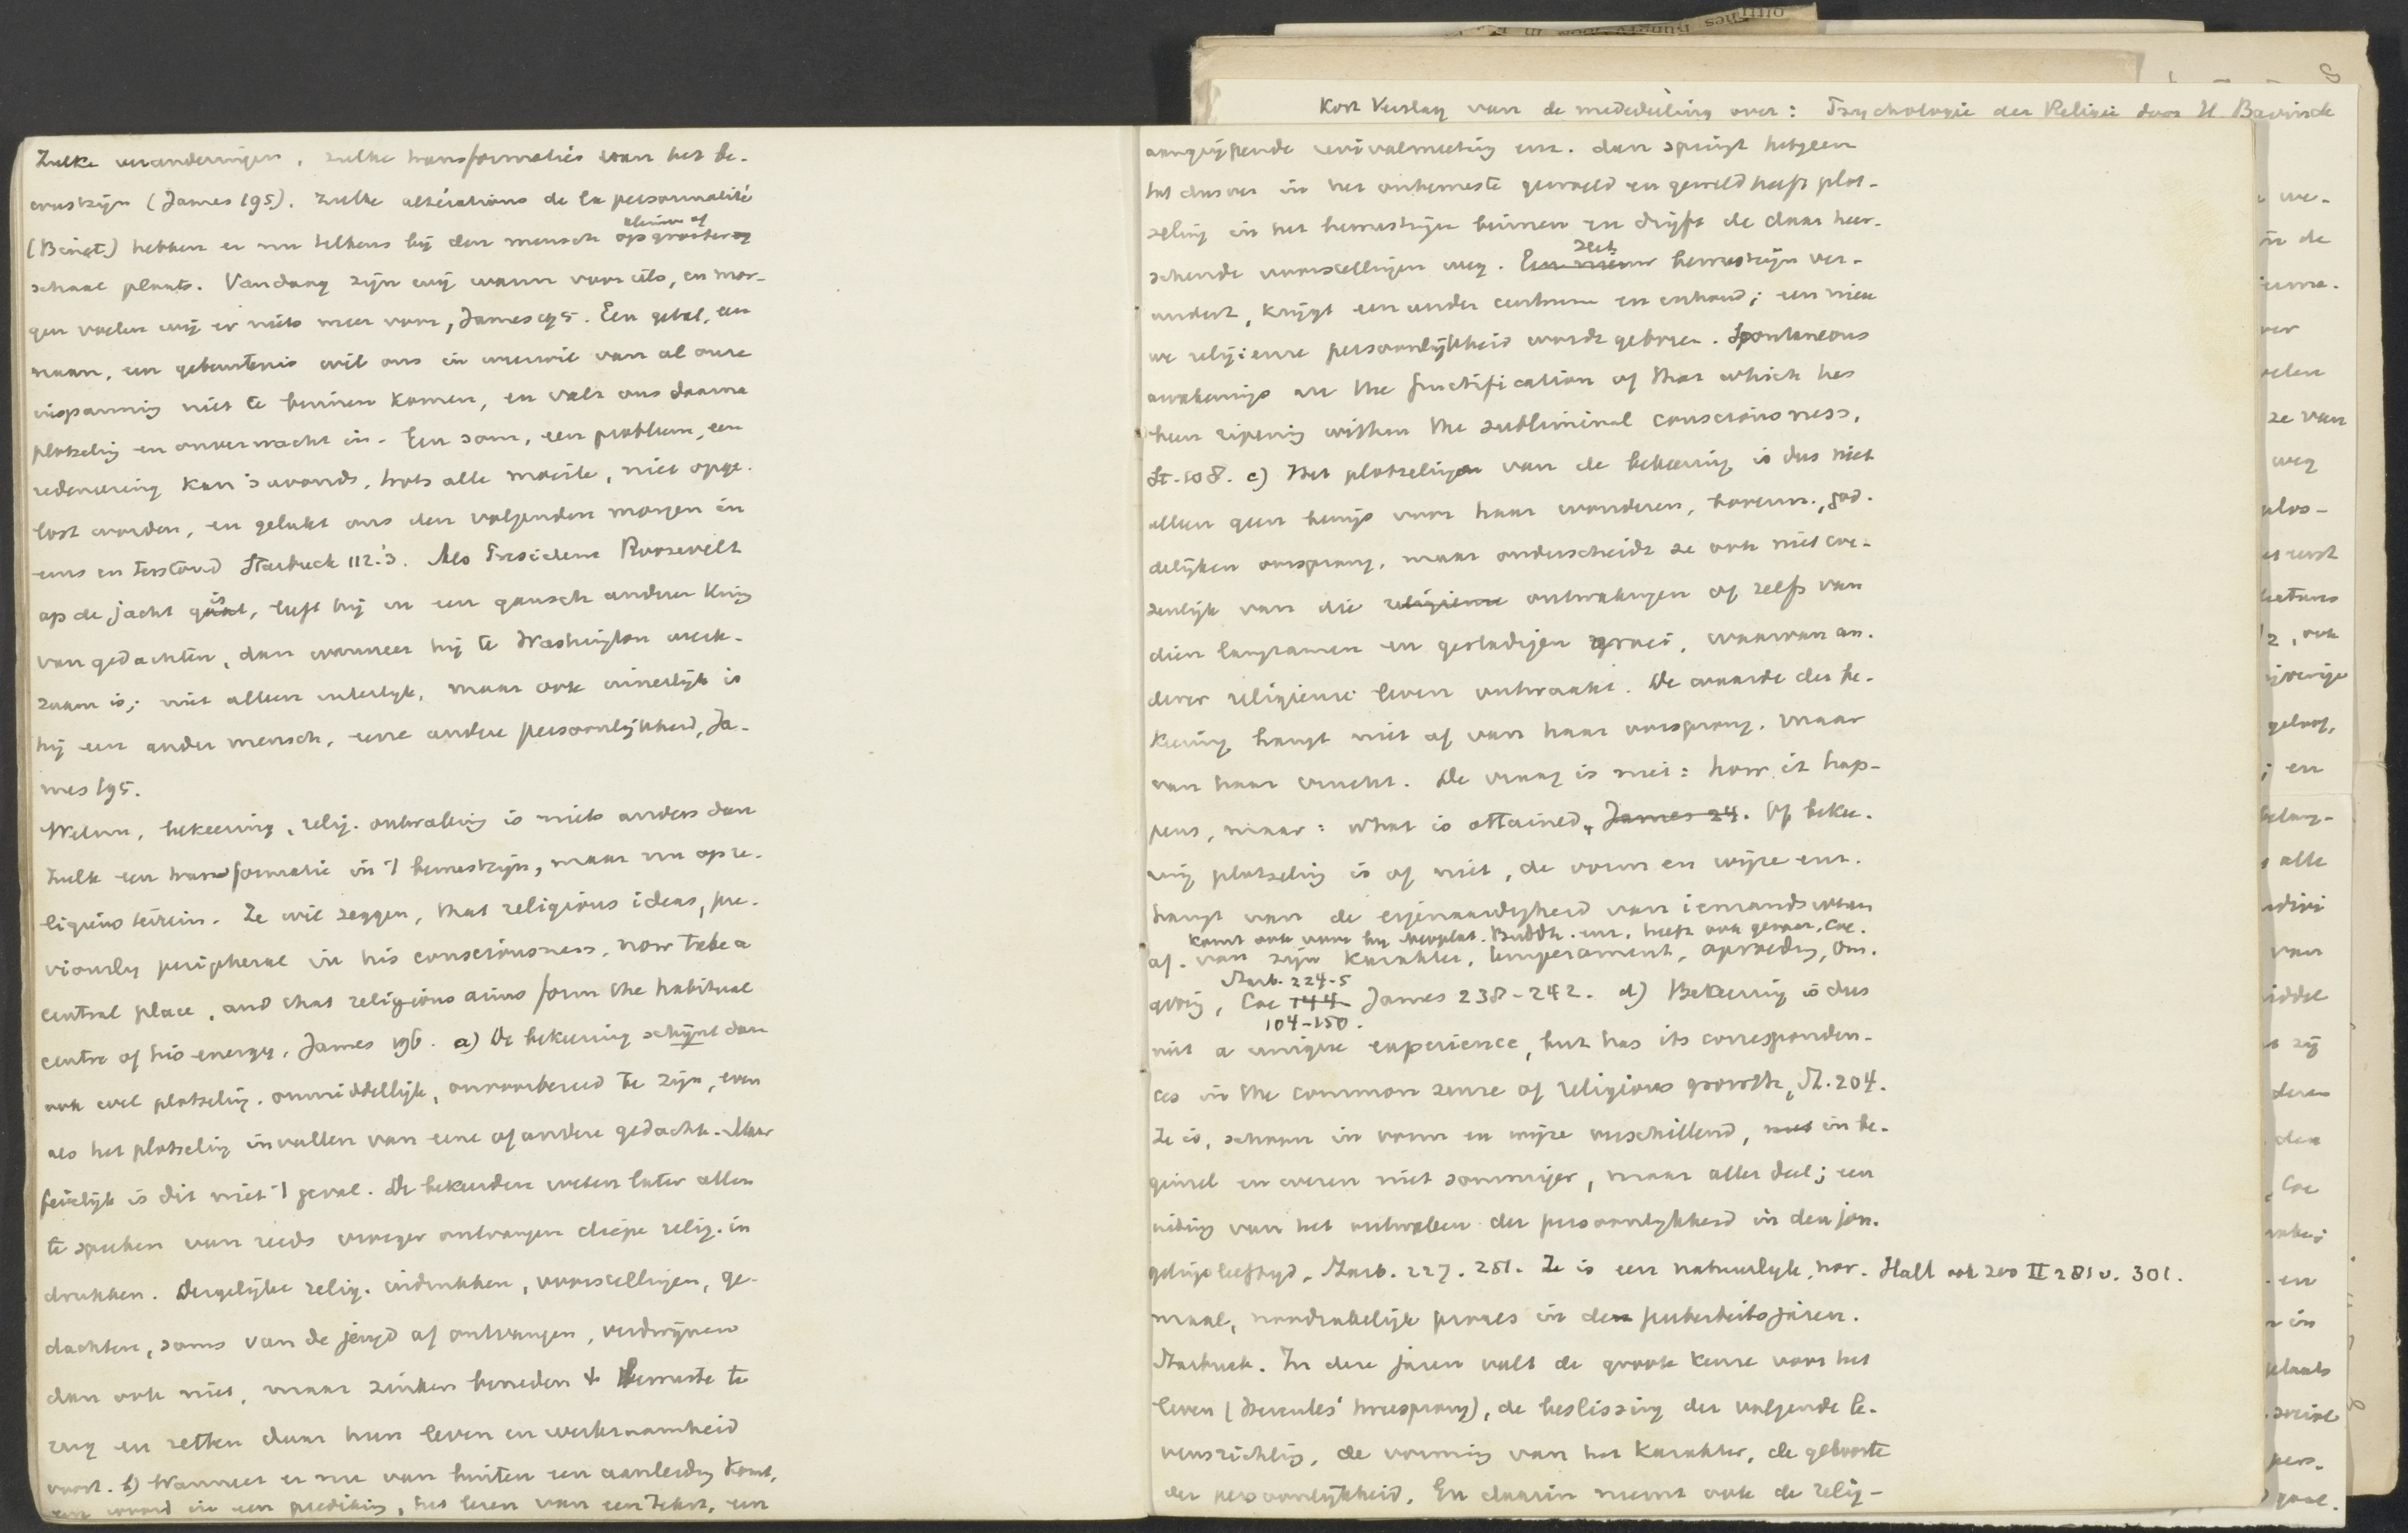 Kort Verslag van de mededeeling over: Psychologie der Religie door H. Bavinck
Zulke veranderingen, zulke transformaties van het be-
wustzijn (James 195), zulke altérations de la personnalité
(Binet) hebben er nu telkens bij den mensch op kleiner of grooter
schaal plaats. Vandaag zijn wij warm voor iets, en mor-
gen voelen wij er niets meer voor, James 195. Een getal, een
naam, een gebeurtenis wil ons in weerwil van al onze
inspanning niet te binnen komen, en valt ons daarna
plotseling en onverwacht in. Een som, een probleem, een
redeneering kan 's avonds, trots alle moeite, niet opge-
lost worden, en gelukt ons den volgenden morgen in
eens en terstond Starbuck 112.'3. Als President Roosevelt
op de jacht is, leeft hij in een gansch andere kring
van gedachten, dan wanneer hij te Washington werk-
zaam is; niet alleen uiterlijk, maar ook innerlijk is
hij een ander mensch, eene andere persoonlijkheid, Ja-
mes 195.
Welnu, bekeering, relig. ontwaking is niets anders dan
zulk een transformatie in 't bewustzijn, maar nu op re-
ligieus terrein. Ze wil zeggen, that religious ideas, pre-
viously peripheral in his consciousness, now take a
central place, and that religious aims form the habitual
centre of his energy, James 196. a) De bekeering schijnt dan
ook wel plotseling, onmiddellijk, onvoorbereid te zijn, even
als het plotseling invallen van eene of andere gedachte. Maar
feitelijk is dit niet 't geval. De bekeerden weten later allen
te spreken van reeds vroeger ontvangen diepe relig. in
drukken. Dergelijke relig. indrukken, voorstellingen, ge-
dachten, soms van de jeugd af ontvangen, verdwijnen
dan ook niet, maar zinken beneden 't bewuste te
rug en zetten daar hun leven en werkzaamheid
voort. b) Wanneer er nu van buiten een aanleiding komt,
een woord in een prediking, het lezen van een tekst, een
aangrijpende revivalmeeting enz. dan springt hetgeen
tot dusver in het onbewuste gewoeld en gewerkt heeft plot-
seling in het bewustzijn binnen en drijft de daar heer-
schende voorstellingen weg. Het bewustzijn ver-
andert, krijgt een ander centrum en inhoud; een nieu
we religieuse persoonlijkheid wordt geboren. Spontaneous
awakenings are the fructification of that which has
been ripening within the subliminal consciousness,
St. 108. c) Het plotselinge van de bekeering is dus niet
alleen geen bewijs voor haar wonderen, bovenn., god-
delijken oorsprong, maar onderscheidt ze ook niet we-
zenlijk van die religieuse ontwakingen of zelfs van
dien langzamen en gestadigen groei, waarvan an-
derer religieuse leven ontwaakt. De waarde der be-
keering hangt niet af van haar oorsprong, maar
van haar vrucht. De vraag is niet: how it hap-
pens, maar: what is attained, James 24. Of bekee-
ring plotseling is of niet, de vorm en wijze enz.
hangt van de eigenaardigheid van iemands wezen
komt ook voor bij Neoplat. Buddh. enz.
af. van zijn karakter, temperament, opvoeding, om-
Starb. 224-5
geving, Coe 144 James 238-242. d) Bekeering is dus
104-150.
niet a unique experience, but has its corresponden-
ces in the common sense of religious growth, St. 204.
Ze is, schoon in vorm en wijze verschillend, in be-
ginsel en wezen niet sommiger, maar aller deel; een
uiting van het ontwaken der persoonlijkheid in den jon-
gelingsleeftijd, Starb. 227. 251. Ze is een natuurlijk, nor- Hall ook zoo II 281 v. 301.
maal, noodzakelijk proces in de puberteitsjaren.
Starbuck. In deze jaren valt de groote keuze voor het
leven (Hercules' tweesprong), de beslissing der volgende le-
vensrichting, de vorming van het karakter, de geboorte
der persoonlijkheid. En daarin neemt ook de relig-